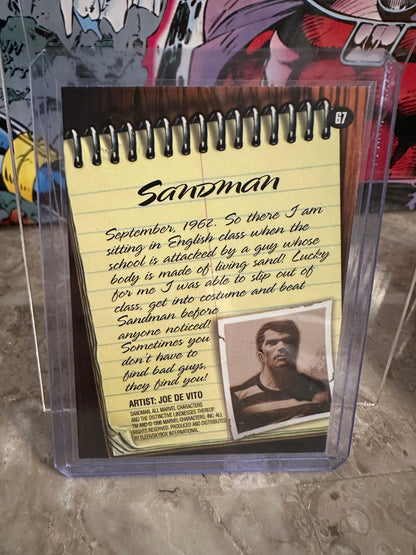 67
Sandman
September, 1962. So there I am
sitting in English class when the
school is attacked by a guy whose
body is made of living sand! Lucky
for me I was able to slip out of
class, get into costume and beat
Sandman before
anyone noticed!
Sometimes you
don't have to
find bad guys,
they find you!
ARTIST: JOE DE VITO
SANDMAN, ALL MARVEL CHARACTERS
AND THE DISTINCTIVE LIKENESSES THEREOF:
TM AND © 1998 MARVEL CHARACTERS, INC. ALL
RIGHTS RESERVED. PRODUCED AND DISTRIBUTED
BY FLEER/SKYBOX INTERNATIONAL.